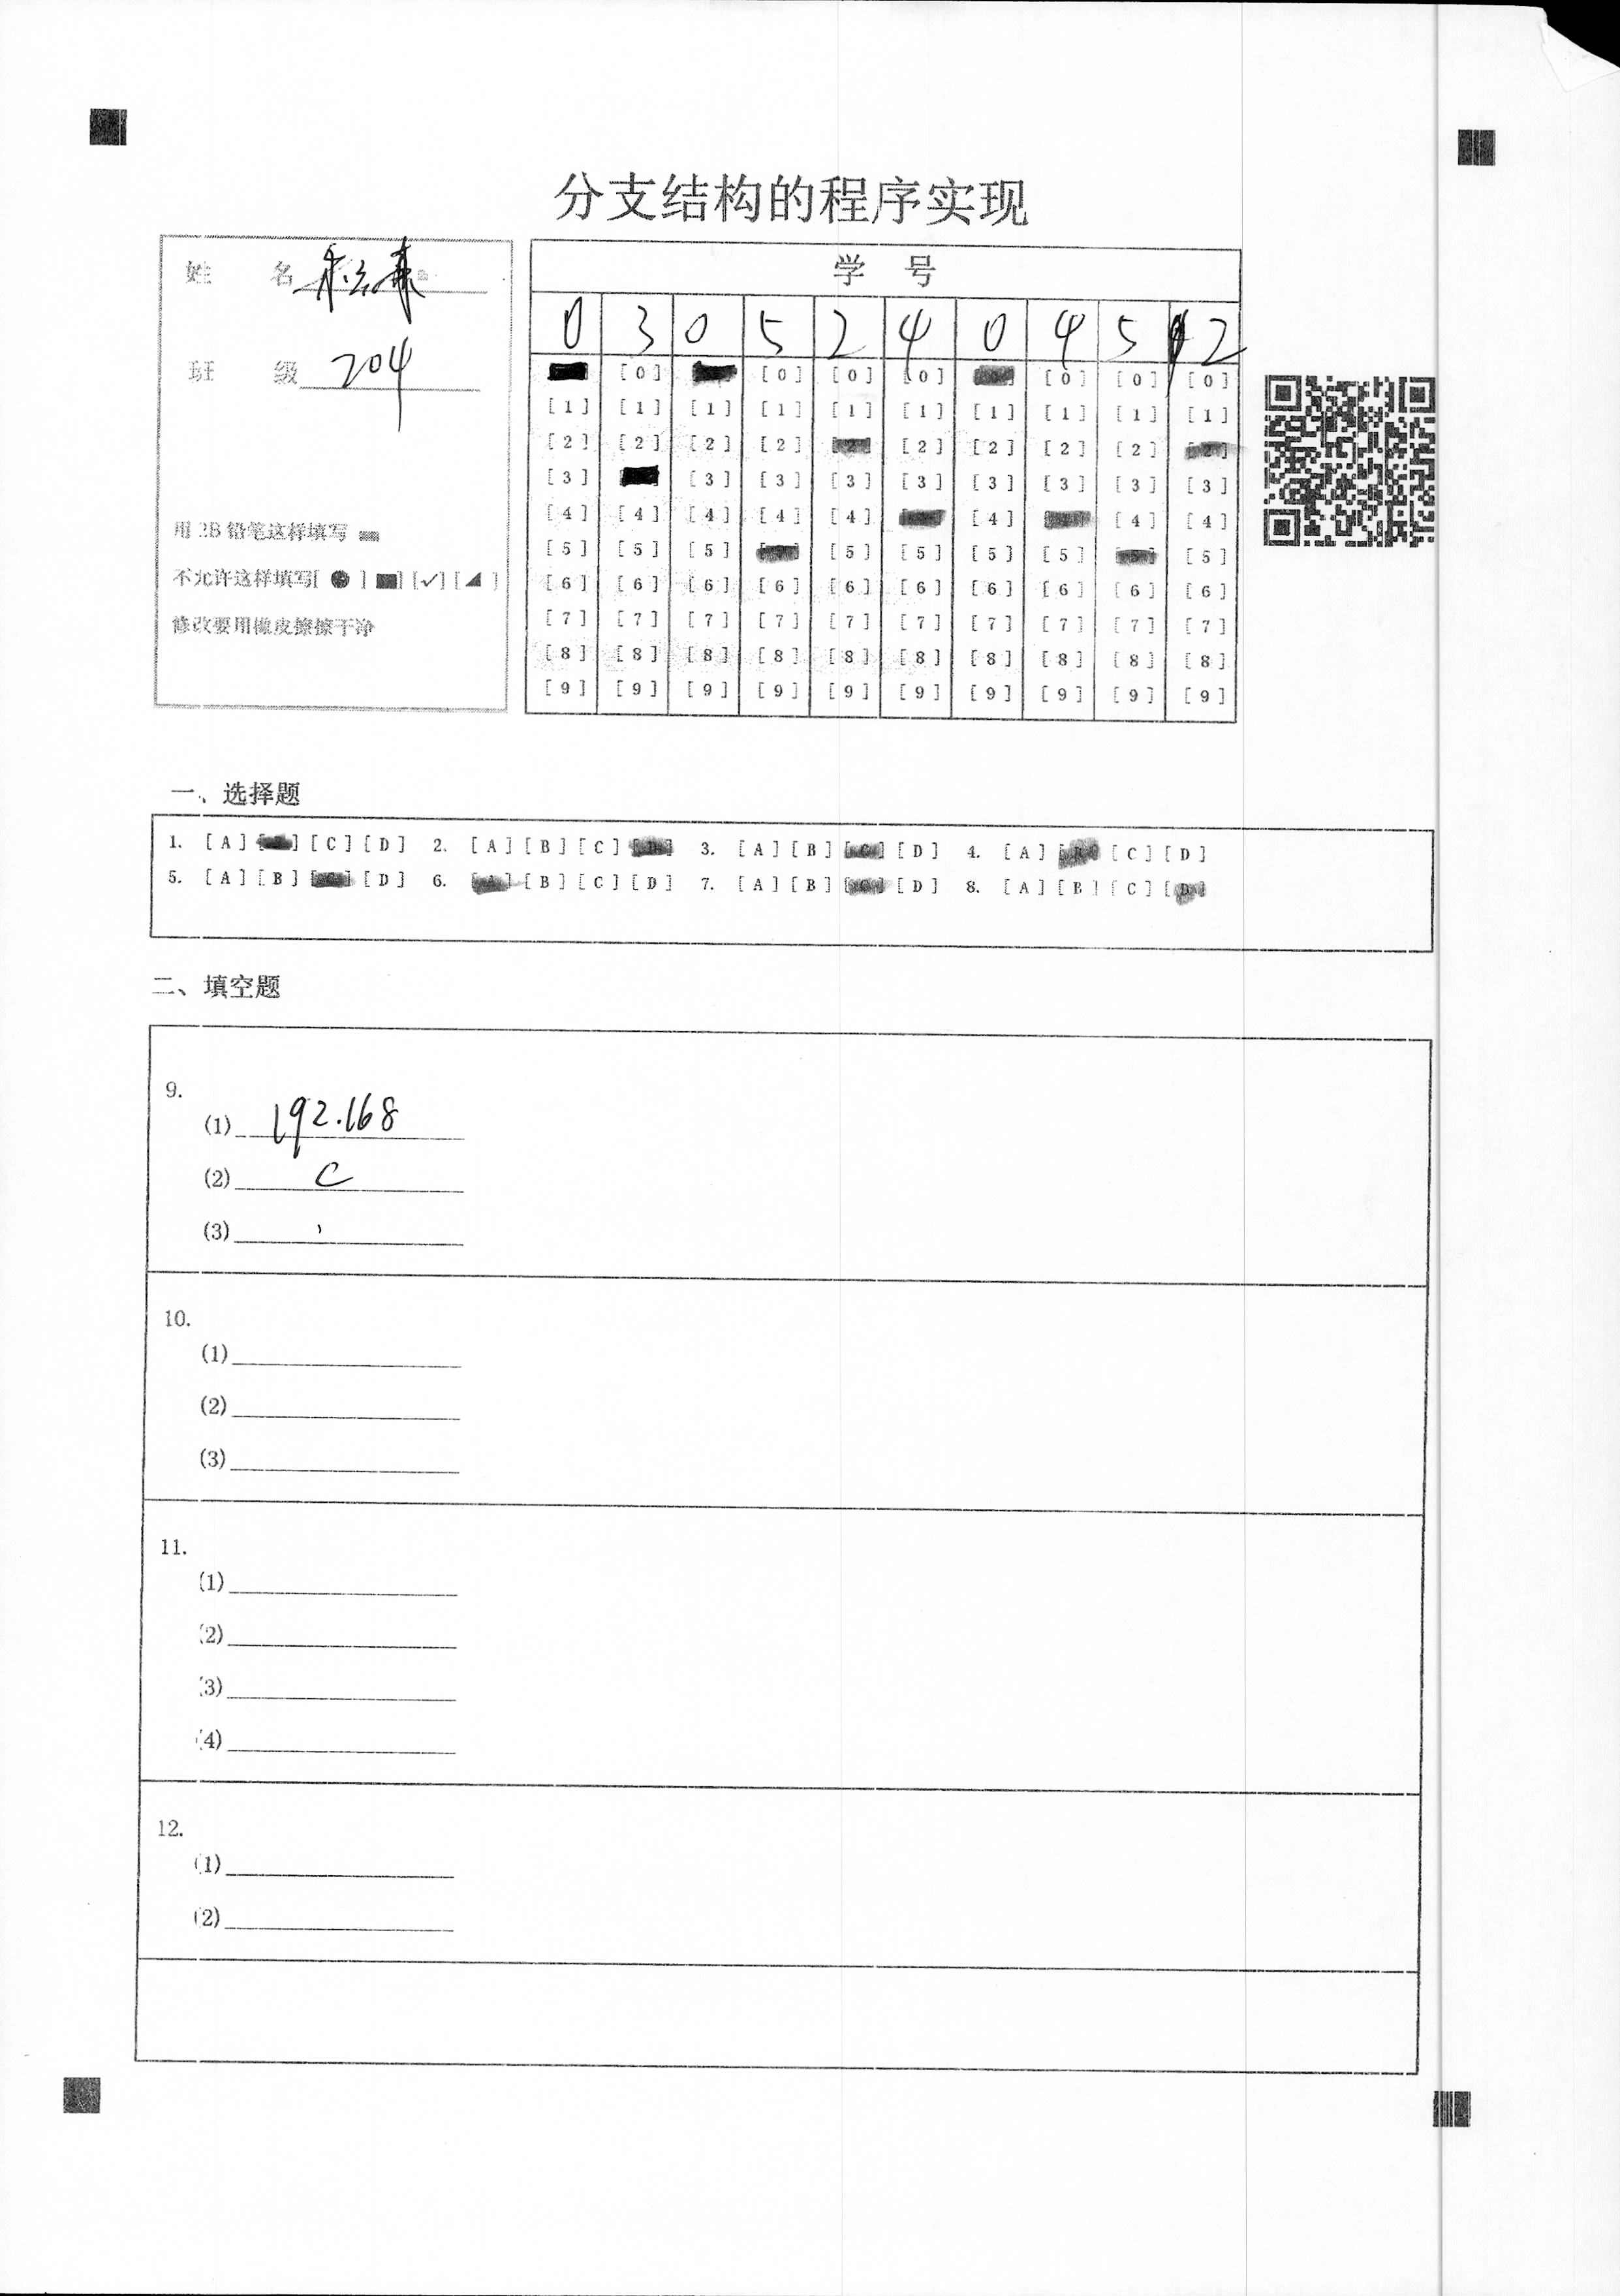 分支结构的程序实现
姓 名
班 级 204
用 2B 铅笔这样填写
不允许这样填写[ ● ] ■] [✓] [◢ ]
修改要用橡皮擦擦干净
学 号
0 3 0 5 2 4 0 4 5 2
[0] [0] [0] [0] [0] [0] [0]
[1] [1] [1] [1] [1] [1] [1] [1] [1] [1]
[2] [2] [2] [2] [2] [2] [2] [2] [2] [2]
[3] [3] [3] [3] [3] [3] [3] [3] [3]
[4] [4] [4] [4] [4] [4] [4] [4]
[5] [5] [5] [5] [5] [5] [5] [5]
[6] [6] [6] [6] [6] [6] [6] [6] [6] [6]
[7] [7] [7] [7] [7] [7] [7] [7] [7] [7]
[8] [8] [8] [8] [8] [8] [8] [8] [8] [8]
[9] [9] [9] [9] [9] [9] [9] [9] [9] [9]
一、选择题
1. [A] [B] [C] [D] 2. [A] [B] [C] [D] 3. [A] [B] [C] [D] 4. [A] [B] [C] [D]
5. [A] [B] [C] [D] 6. [A] [B] [C] [D] 7. [A] [B] [C] [D] 8. [A] [B] [C] [D]
二、填空题
9.
(1) 192.168
(2) C
(3)
10.
(1)
(2)
(3)
11.
(1)
(2)
(3)
(4)
12.
(1)
(2)